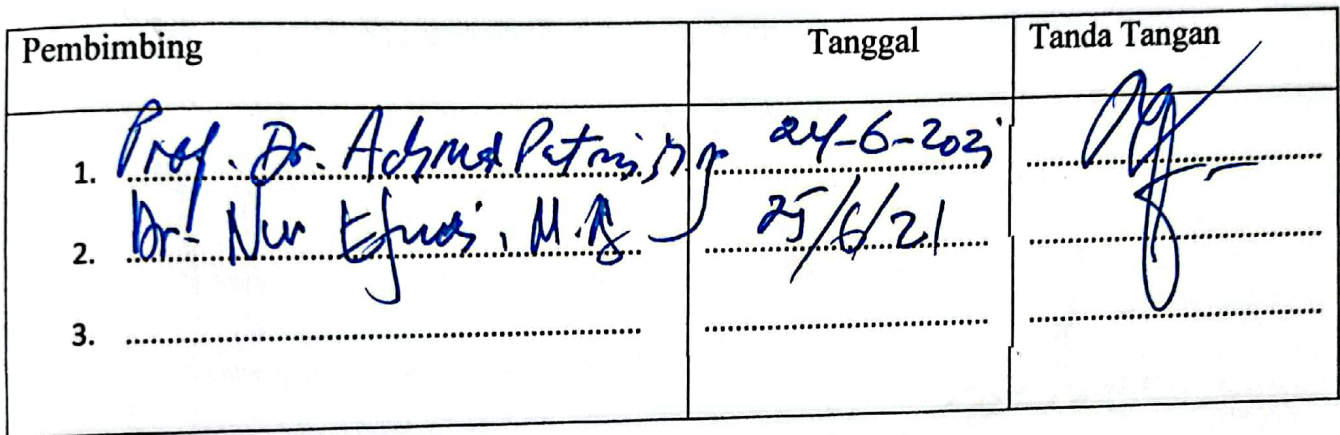 Pembimbing Tanggal Tanda Tangan
1. Prof. Dr. Achmad 24-6-2021
2. Dr. Nur Efendi, M. 25/6/21
3.